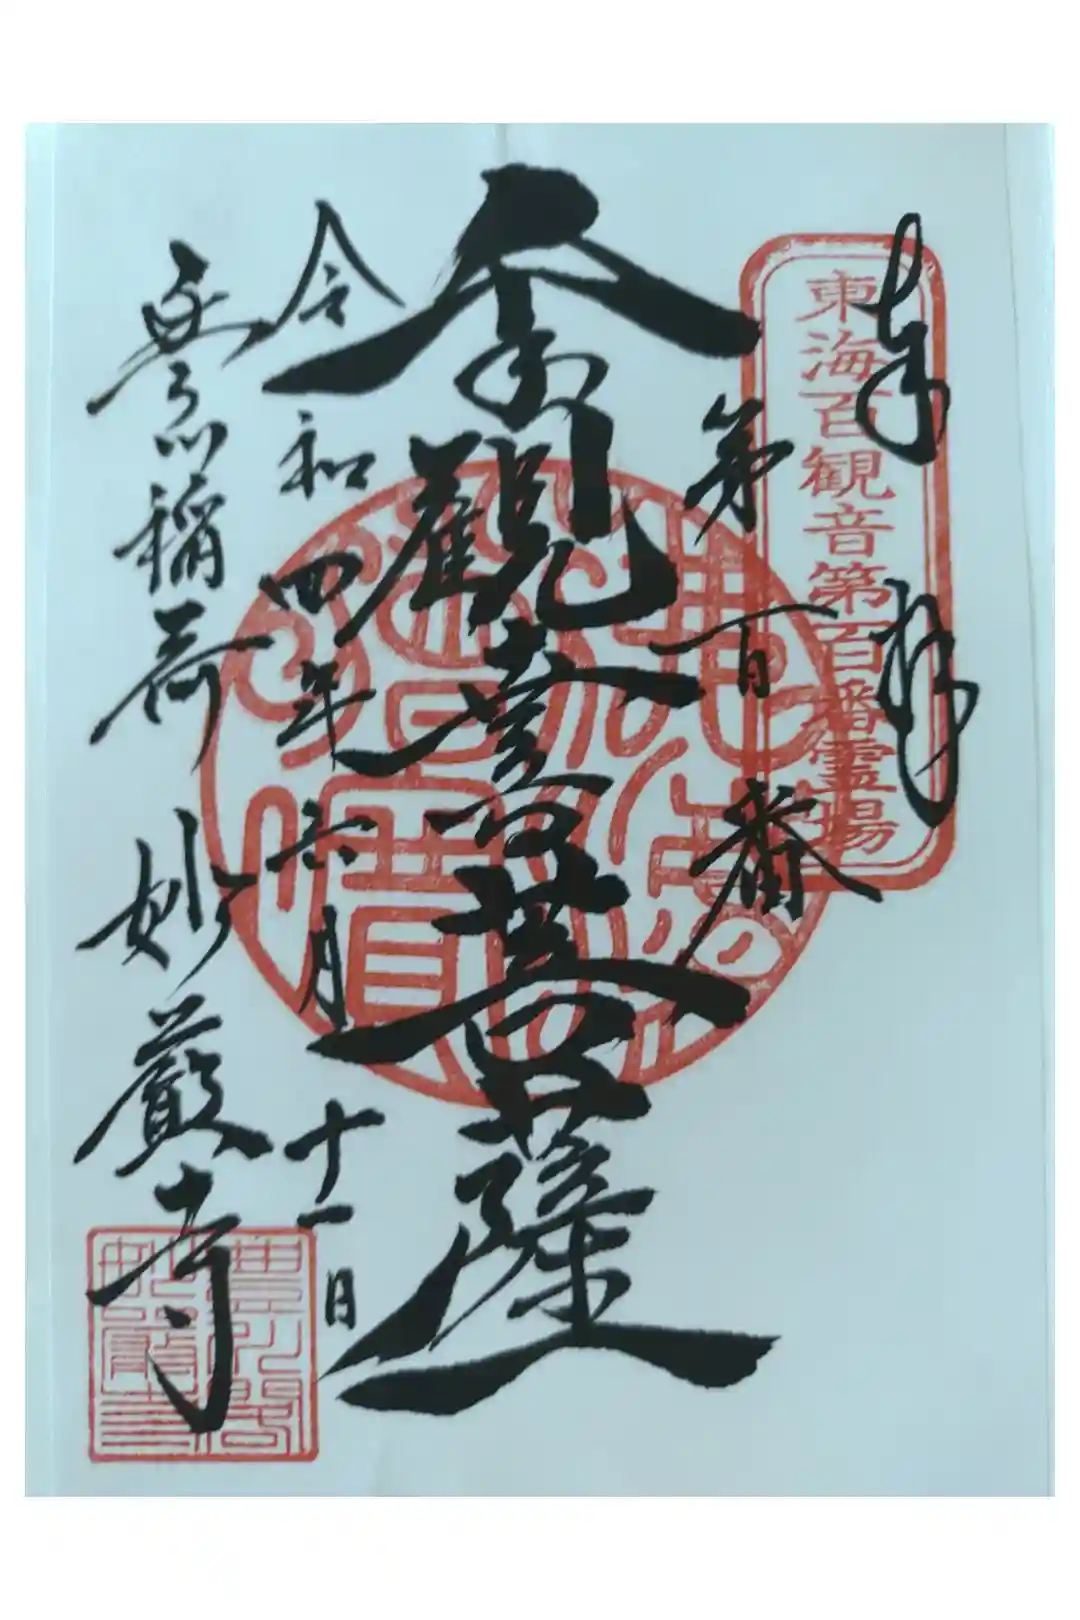 奉拝
東海百観音第百番霊場
第百番
千手觀音菩薩
令和四年六月十一日
豊川稲荷 妙嚴寺
豊川閣
妙嚴寺